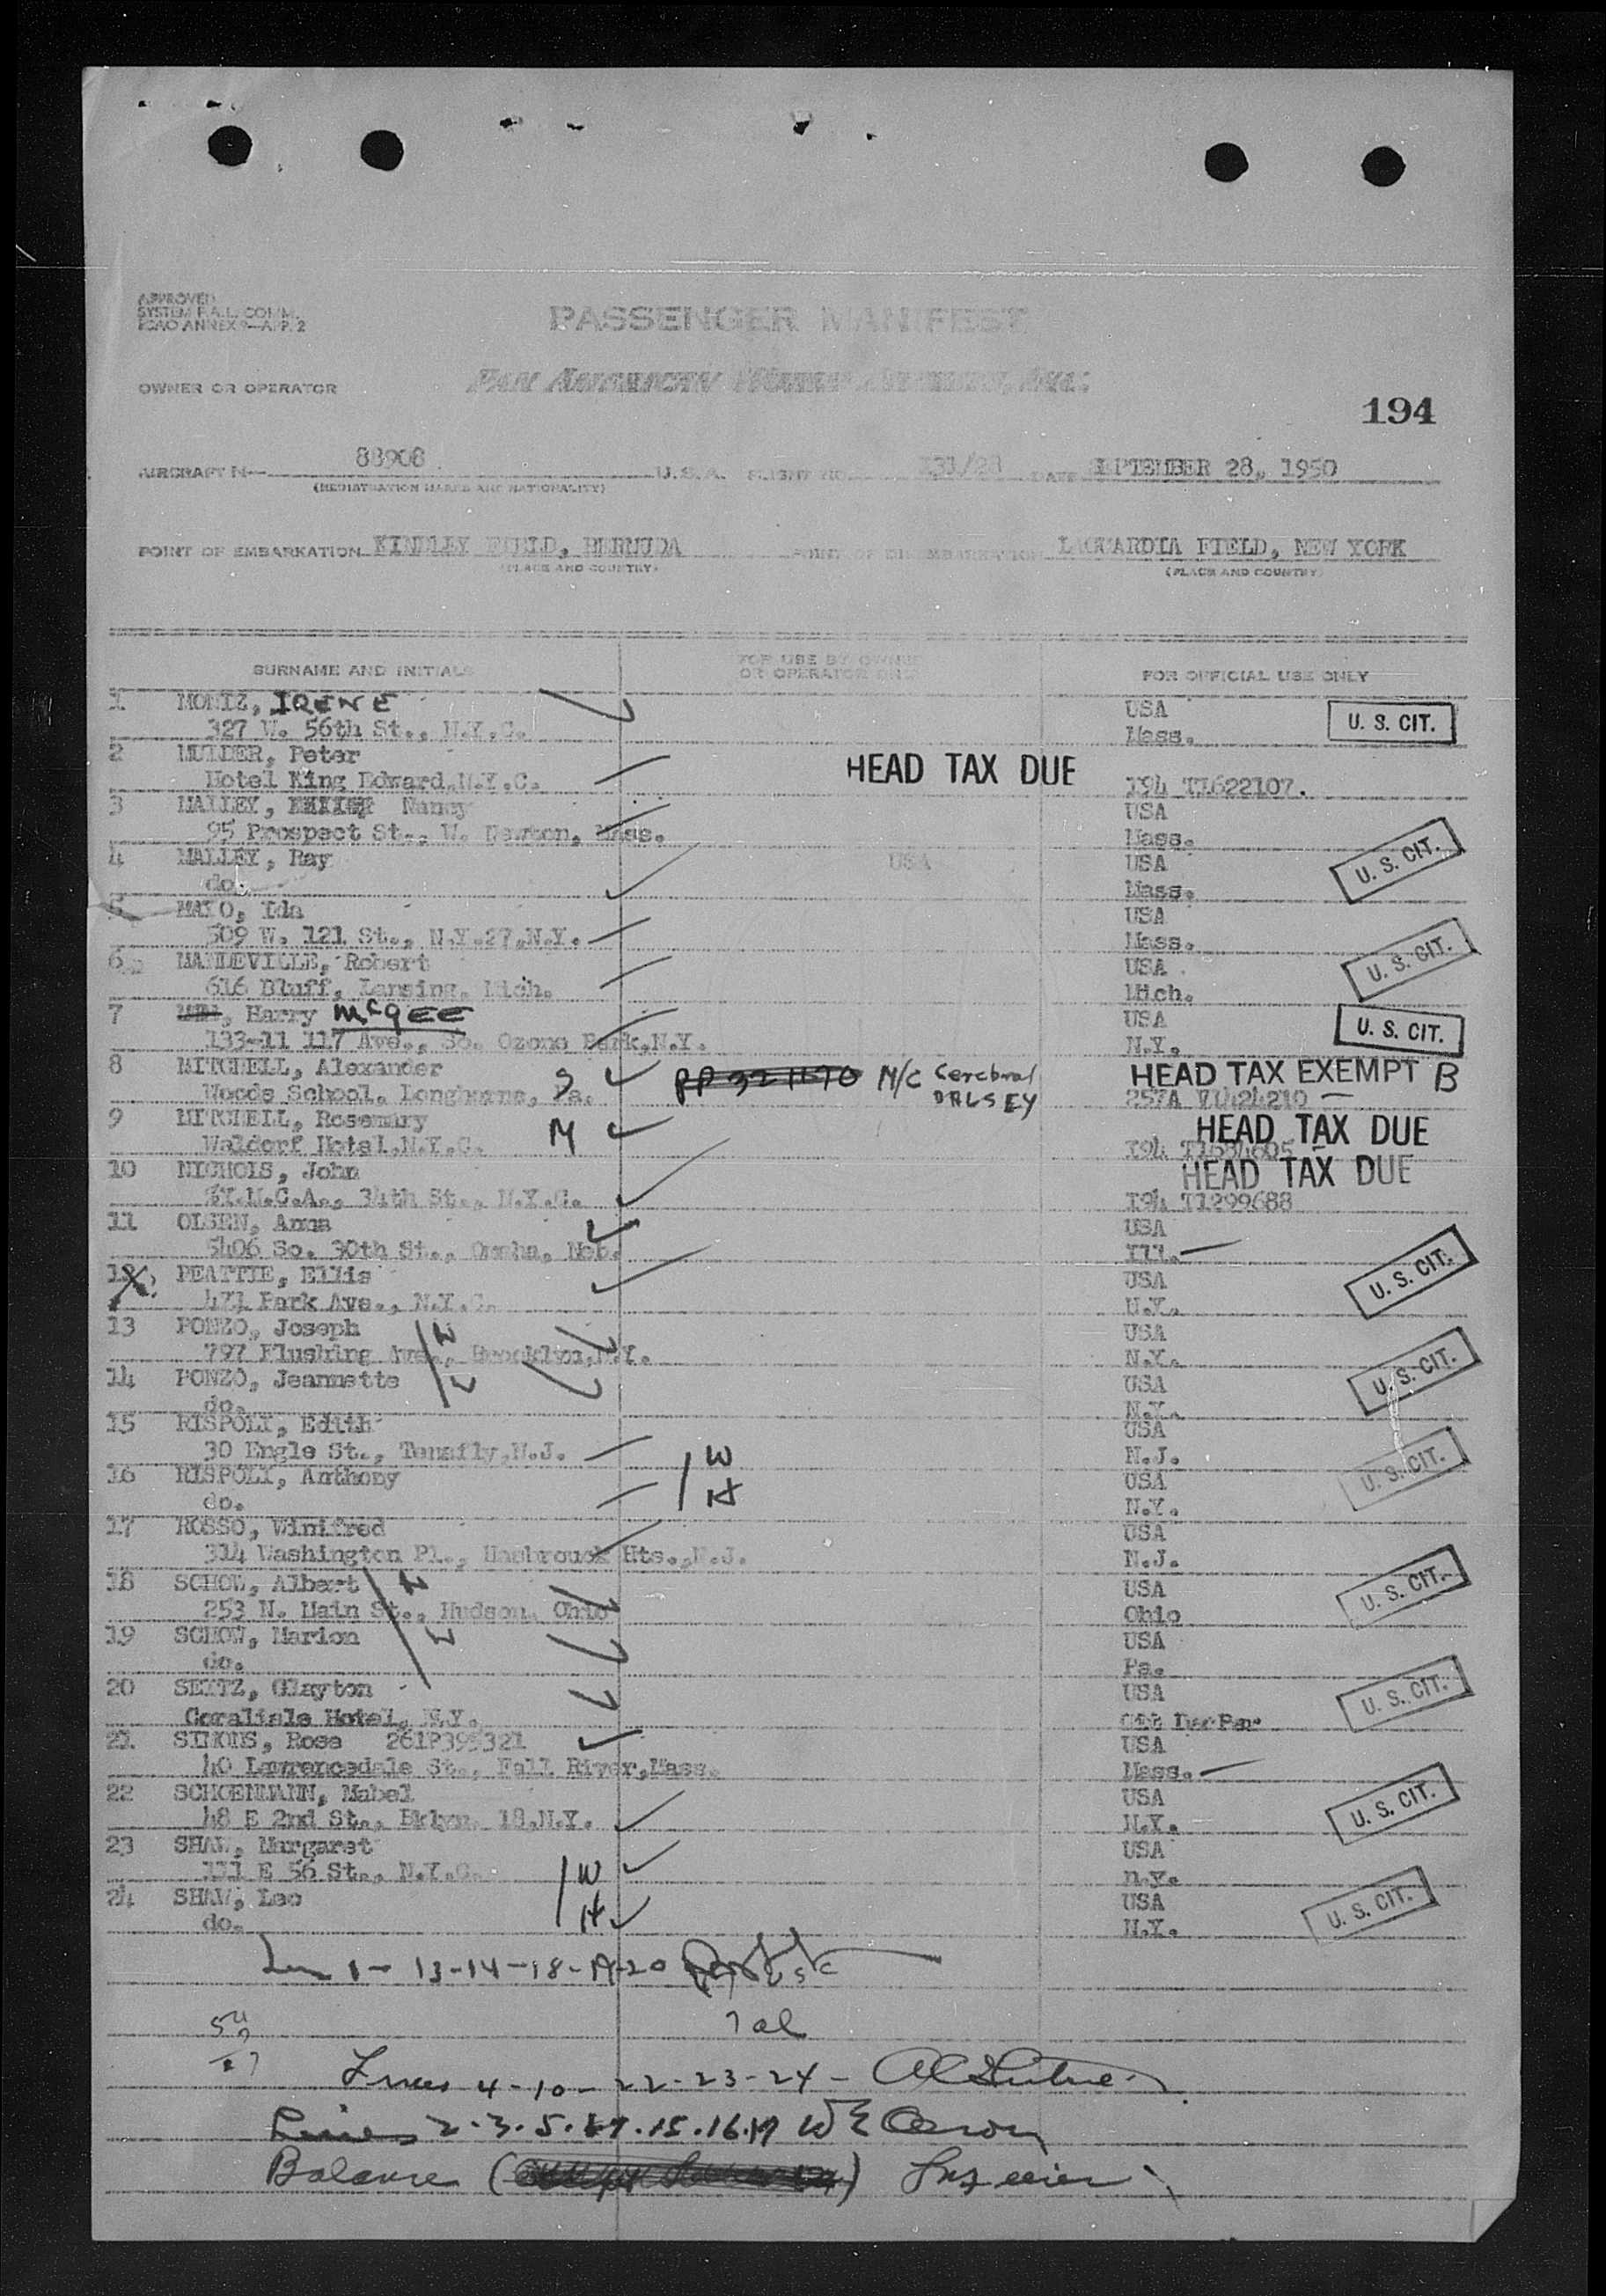 APPROVED
SYSTEM F.A.L. COMM.
ICAO ANNEX 9—APP. 2
PASSENGER MANIFEST
OWNER OR OPERATOR PAN AMERICAN WORLD AIRWAYS, INC.
194
AIRCRAFT N— 88908 U.S.A. FLIGHT NO. 131/28 DATE SEPTEMBER 28, 1950
(REGISTRATION MARKS AND NATIONALITY)
POINT OF EMBARKATION KINDLEY FIELD, BERMUDA POINT OF DISEMBARKATION LAGUARDIA FIELD, NEW YORK
(PLACE AND COUNTRY) (PLACE AND COUNTRY)
SURNAME AND INITIALS FOR USE BY OWNER OR OPERATOR ONLY FOR OFFICIAL USE ONLY
1 MONIZ, IRENE USA
327 W. 56th St., N.Y.C. Mass. U. S. CIT.
2 MULDER, Peter HEAD TAX DUE
Hotel King Edward,N.Y.C. I94 T1622107.
3 MALLEY, Nancy USA
95 Prospect St., W. Newton, Mass. Mass.
4 MALLEY, Ray USA USA U. S. CIT.
do. Mass.
5 MAYO, Ida USA
509 W. 121 St., N.Y.27,N.Y. Mass.
6 MANDEVILLE, Robert USA U. S. CIT.
616 Bluff, Lansing, Mich. Mich.
7 , Harry McGEE USA U. S. CIT.
133-11 117 Ave., So. Ozone Park,N.Y. N.Y.
8 MITCHELL, Alexander S PP 321170 M/C Cerebral HEAD TAX EXEMPT B
Woods School, Langhorne, Pa. PALSEY 257A V1424210
9 MITCHELL, Rosemary M HEAD TAX DUE
Waldorf Hotel,N.Y.C. I94 T1684605
10 NICHOLS, John HEAD TAX DUE
Y.M.C.A., 34th St., N.Y.C. I94 T1299688
11 OLSEN, Anna USA
5406 So. 30th St., Omaha, Neb. Ill.
12 PEATTIE, Ellis USA U. S. CIT.
471 Park Ave., N.Y.C. N.Y.
13 PONZO, Joseph H USA
797 Flushing Ave., Brooklyn,N.Y. N.Y.
14 PONZO, Jeannette W USA U. S. CIT.
do. N.Y.
15 RISPOLI, Edith USA
30 Engle St., Tenafly,N.J. W N.J.
16 RISPOLI, Anthony H USA U. S. CIT.
do. N.Y.
17 ROSSO, Winifred USA
314 Washington Pl., Hasbrouck Hts.,N.J. N.J.
18 SCHOW, Albert H USA U. S. CIT.
253 N. Main St., Hudson, Ohio Ohio
19 SCHOW, Marion W USA
do. Pa.
20 SEITZ, Clayton USA U. S. CIT.
Coralisle Hotel, N.Y.
21 SIMONS, Rose 261P395321 USA
40 Lawrencedale St., Fall River,Mass. Mass.
22 SCHOENMANN, Mabel USA U. S. CIT.
48 E 2nd St., Bklyn. 18,N.Y. N.Y.
23 SHAW, Margaret USA
111 E 56 St., N.Y.C. W N.Y.
24 SHAW, Leo H USA U. S. CIT.
do. N.Y.
1 - 13-14-18-19-20
Lines 4-10-22-23-24 -
Lines 2.3.5.67.15.16.17
Balance ( )